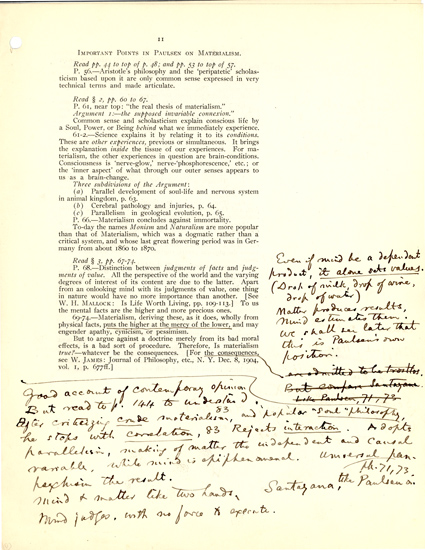 11
IMPORTANT POINTS IN PAULSEN ON MATERIALISM.
Read pp. 44 to top of p. 48; and pp. 53 to top of 57.
P. 56.—Aristotle's philosophy and the 'peripatetic' scholas-
ticism based upon it are only common sense expressed in very
technical terms and made articulate.
Read § 2, pp. 60 to 67.
P. 61, near top: "the real thesis of materialism."
Argument 1:—the supposed invariable connexion."
Common sense and scholasticism explain conscious life by
a Soul, Power, or Being behind what we immediately experience.
61-2.—Science explains it by relating it to its conditions.
These are other experiences, previous or simultaneous. It brings
the explanation inside the tissue of our experiences. For ma-
terialism, the other experiences in question are brain-conditions.
Consciousness is 'nerve-glow,' nerve-'phosphorescence,' etc.; or
the 'inner aspect' of what through our outer senses appears to
us as a brain-change.
Three subdivisions of the Argument:
(a) Parallel development of soul-life and nervous system
in animal kingdom, p. 63.
(b) Cerebral pathology and injuries, p. 64.
(c) Parallelism in geological evolution, p. 65.
P. 66.—Materialism concludes against immortality.
To-day the names Monism and Naturalism are more popular
than that of Materialism, which was a dogmatic rather than a
critical system, and whose last great flowering period was in Ger-
many from about 1860 to 1870.
Read § 3, pp. 67-74.
P. 68.—Distinction between judgments of facts and judg-
ments of value. All the perspective of the world and the varying
degrees of interest of its content are due to the latter. Apart
from an onlooking mind with its judgments of value, one thing
in nature would have no more importance than another. [See
W. H. MALLOCK: Is Life Worth Living, pp. 109-113.] To us
the mental facts are the higher and more precious ones.
69-74.—Materialism, deriving these, as it does, wholly from
physical facts, puts the higher at the mercy of the lower, and may
engender apathy, cynicism, or pessimism.
But to argue against a doctrine merely from its bad moral
effects, is a bad sort of procedure. Therefore, Is materialism
true?—whatever be the consequences. [For the consequences,
see W. JAMES: Journal of Philosophy, etc., N. Y. Dec. 8, 1904,
vol. 1, p. 677ff.]
Even if mind be a dependent
product, it alone sets values.
(Drop of milk, drop of wine,
drop of water)
Matter produces results,
Mind estimates them.
We shall see later that
this is Paulsen's own
position.
admitted to be
But compare Santayana
like Paulsen, 71, 73
Good account of contemporary opinion.
But read to p. 144 to understand.
After criticizing crude materialism, 83 and popular "Soul" philosophy,
he stops with correlation, 83 Rejects interaction. Adopts
parallelism, making of matter the independent and causal
variable, while mind is epiphenomenal. Universal pan-
psychism the result. 71, 73.
Mind & matter like two hands. Santayana, like Paulsen
Mind judges, with no force to execute.